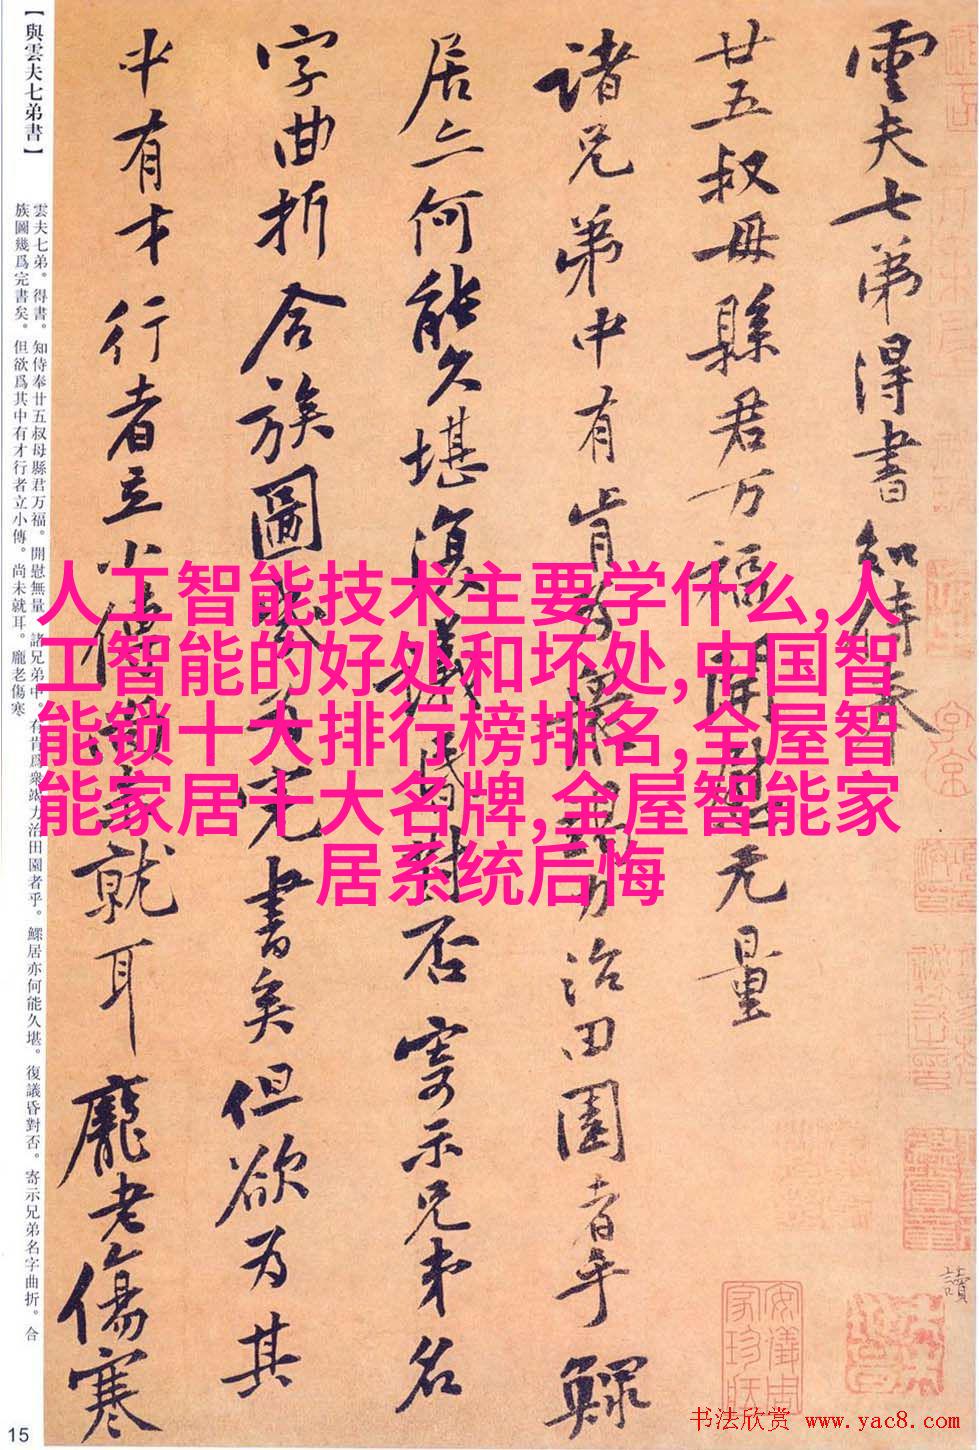 【與雲夫七弟書】
雲夫七弟。得書。知侍奉廿五叔母縣君万福。開慰無量。諸兄弟中。有肯爲衆竭力治田園者乎。鰥居亦何能久堪。復議昏對否。寄示兄弟名字曲折。合
族圖幾爲完書矣。但欲爲其中有才行者立小傳。尚未就耳。龐老傷寒
雲夫七弟得書知侍奉
廿五叔母縣君万福開慰无量
諸兄弟中有肯為衆竭力治田園者乎鰥
居亦何能久堪復議昏對否寄示兄弟名
字曲折合族圖幾為完書矣但欲为其
中有才行者立小傳尚未就耳龐老傷寒
人工智能技术主要学什么,人
工智能的好处和坏处,中国智
能锁十大排行榜排名,全屋智
能家居十大名牌,全屋智能家
居系统后悔
讀
安儀周
家珍藏
15
书法欣赏 www.yac8.com